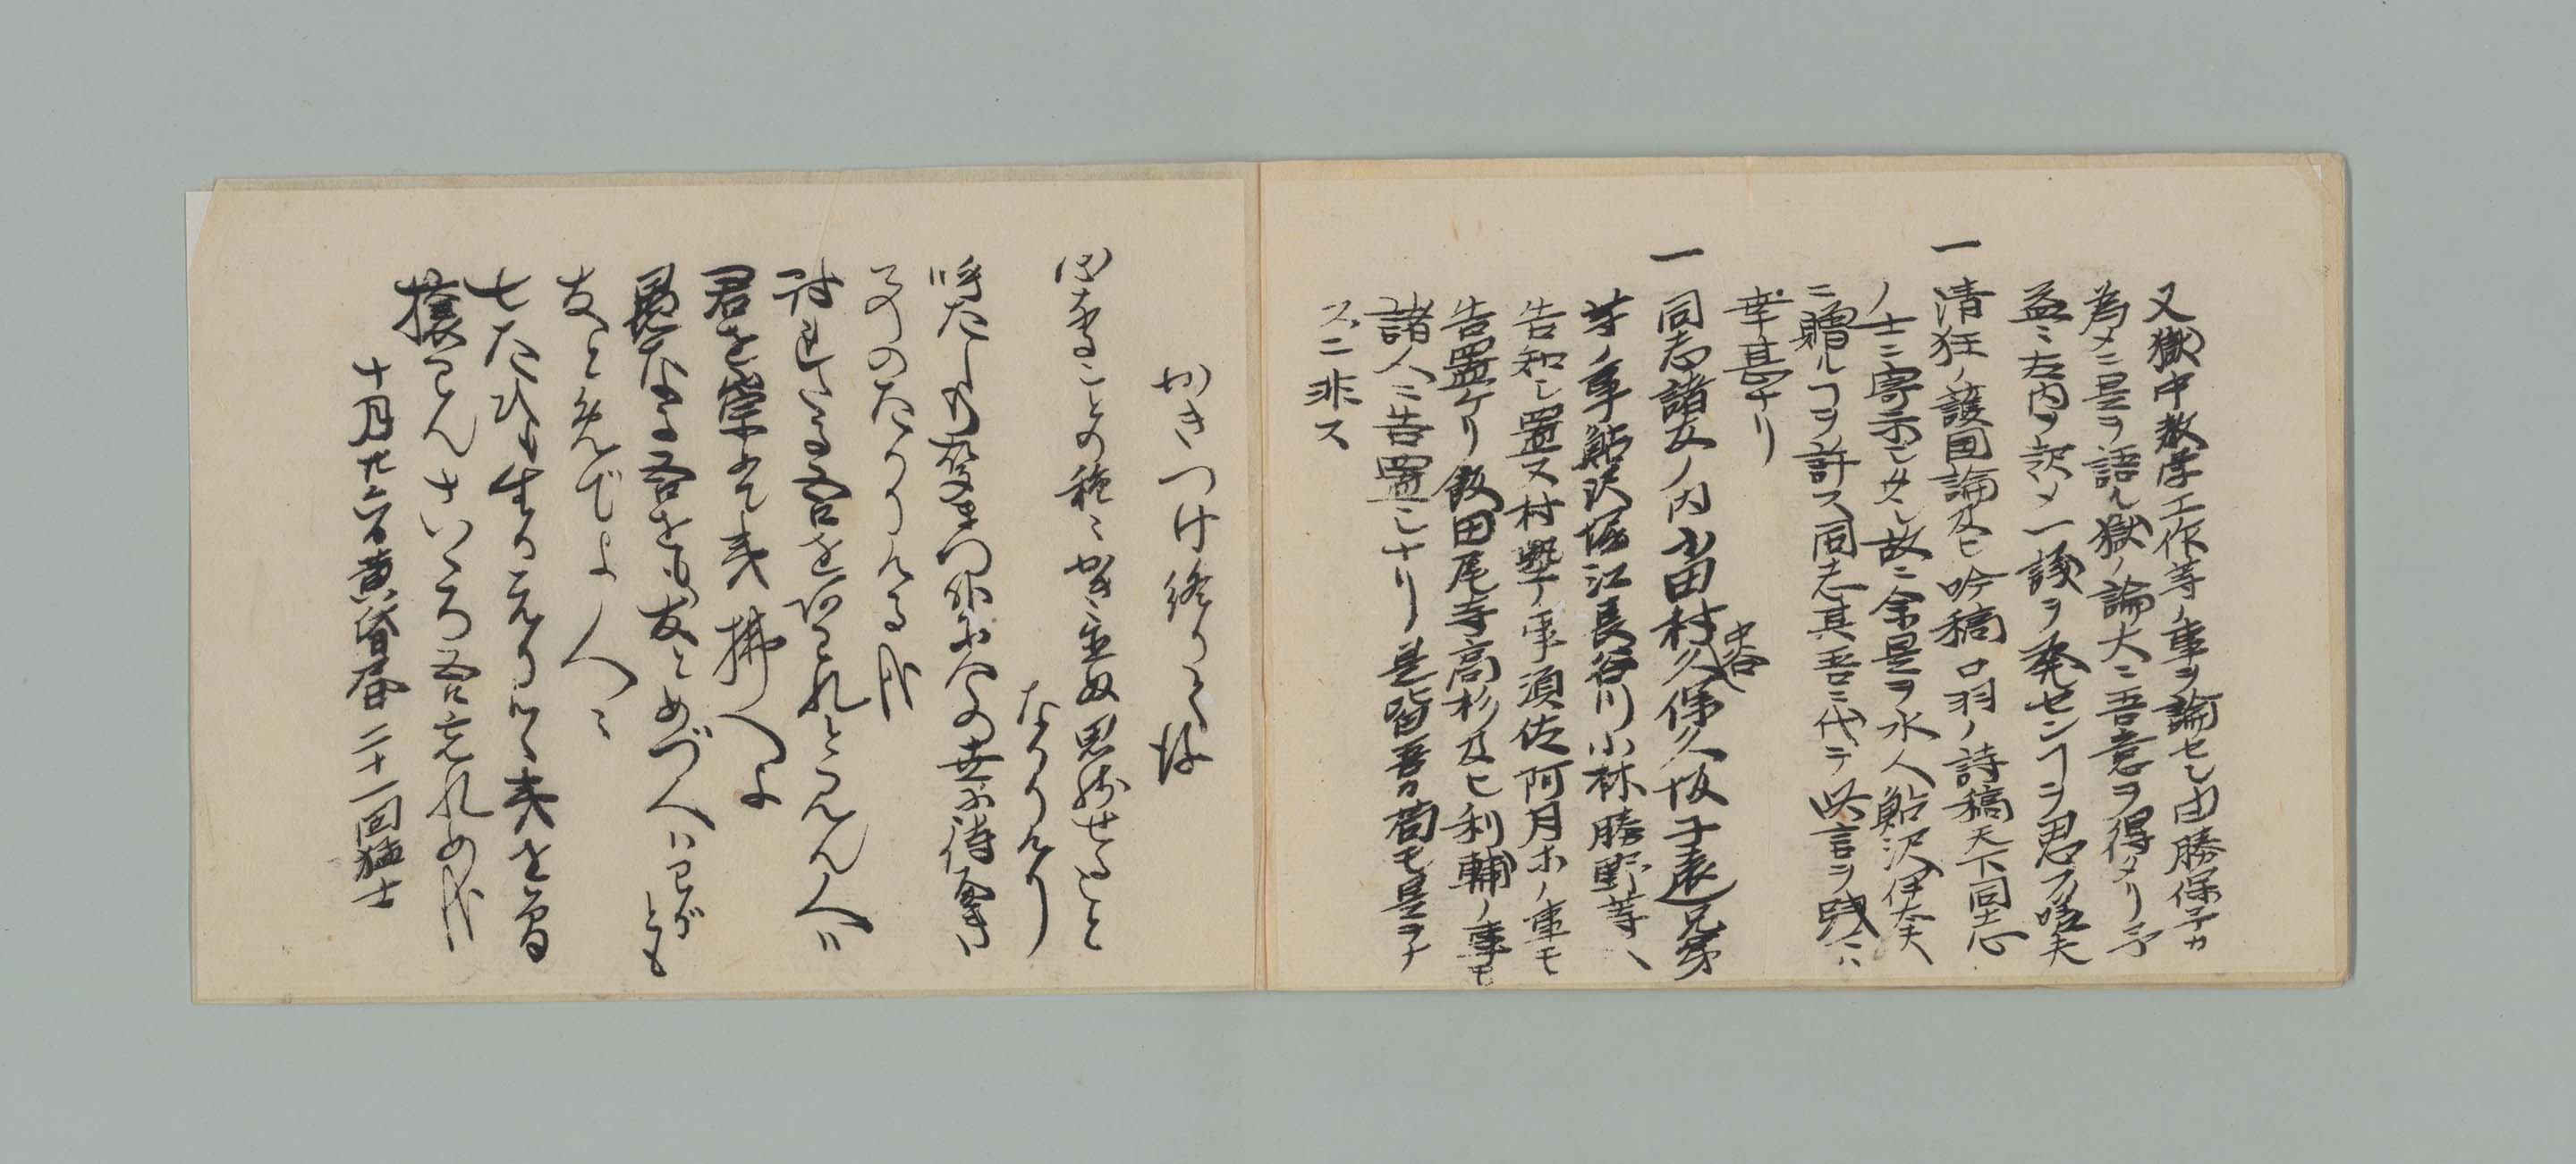 又獄中教学工作等ノ事ヲ論セシ由勝保子カ
為メニ是ヲ語ル獄ノ論大ニ吾意ヲ得タリ予
益ミ左内ヲ起メ一議ヲ発センヿヲ思フ嗟夫
一清狂ノ護国論及ヒ吟稿口羽ノ詩稿天下同志
ノ士ニ寄示シタシ故ニ余是ヲ水人鮎沢伊太夫
ニ贈ルヿヲ許ス同志其吾ニ代テ此言ヲ践マハ
幸甚ナリ
一同志諸友ノ内小田村中谷久保久坂子遠兄弟
等ノ事鮎沢堀江長谷川小林勝野等ヘ
告知シ置ヌ村塾ノ事須佐阿月ホノ事モ
告置ケリ飯田尾寺高杉及ヒ利輔ノ事モ
諸人ニ告置シナリ是皆吾カ苟モ是ヲナ
スニ非ス
かきつけ終りて後
心なることの種ゝかき置ぬ思残せることと
なかりけり
呼たしの声まつ外に今の世に待へき事の
なかりける哉
討れたる吾をあわれと見ん人ハ
君を崇めて夷払へよ
愚なる吾をも友とめづ人ハわがとも
友とめでよ人ゝ
七たひも生かえりつゝ夷をそ
攘はんこゝろ吾忘れめ哉
十月廿六日黄昏書　二十一回猛士